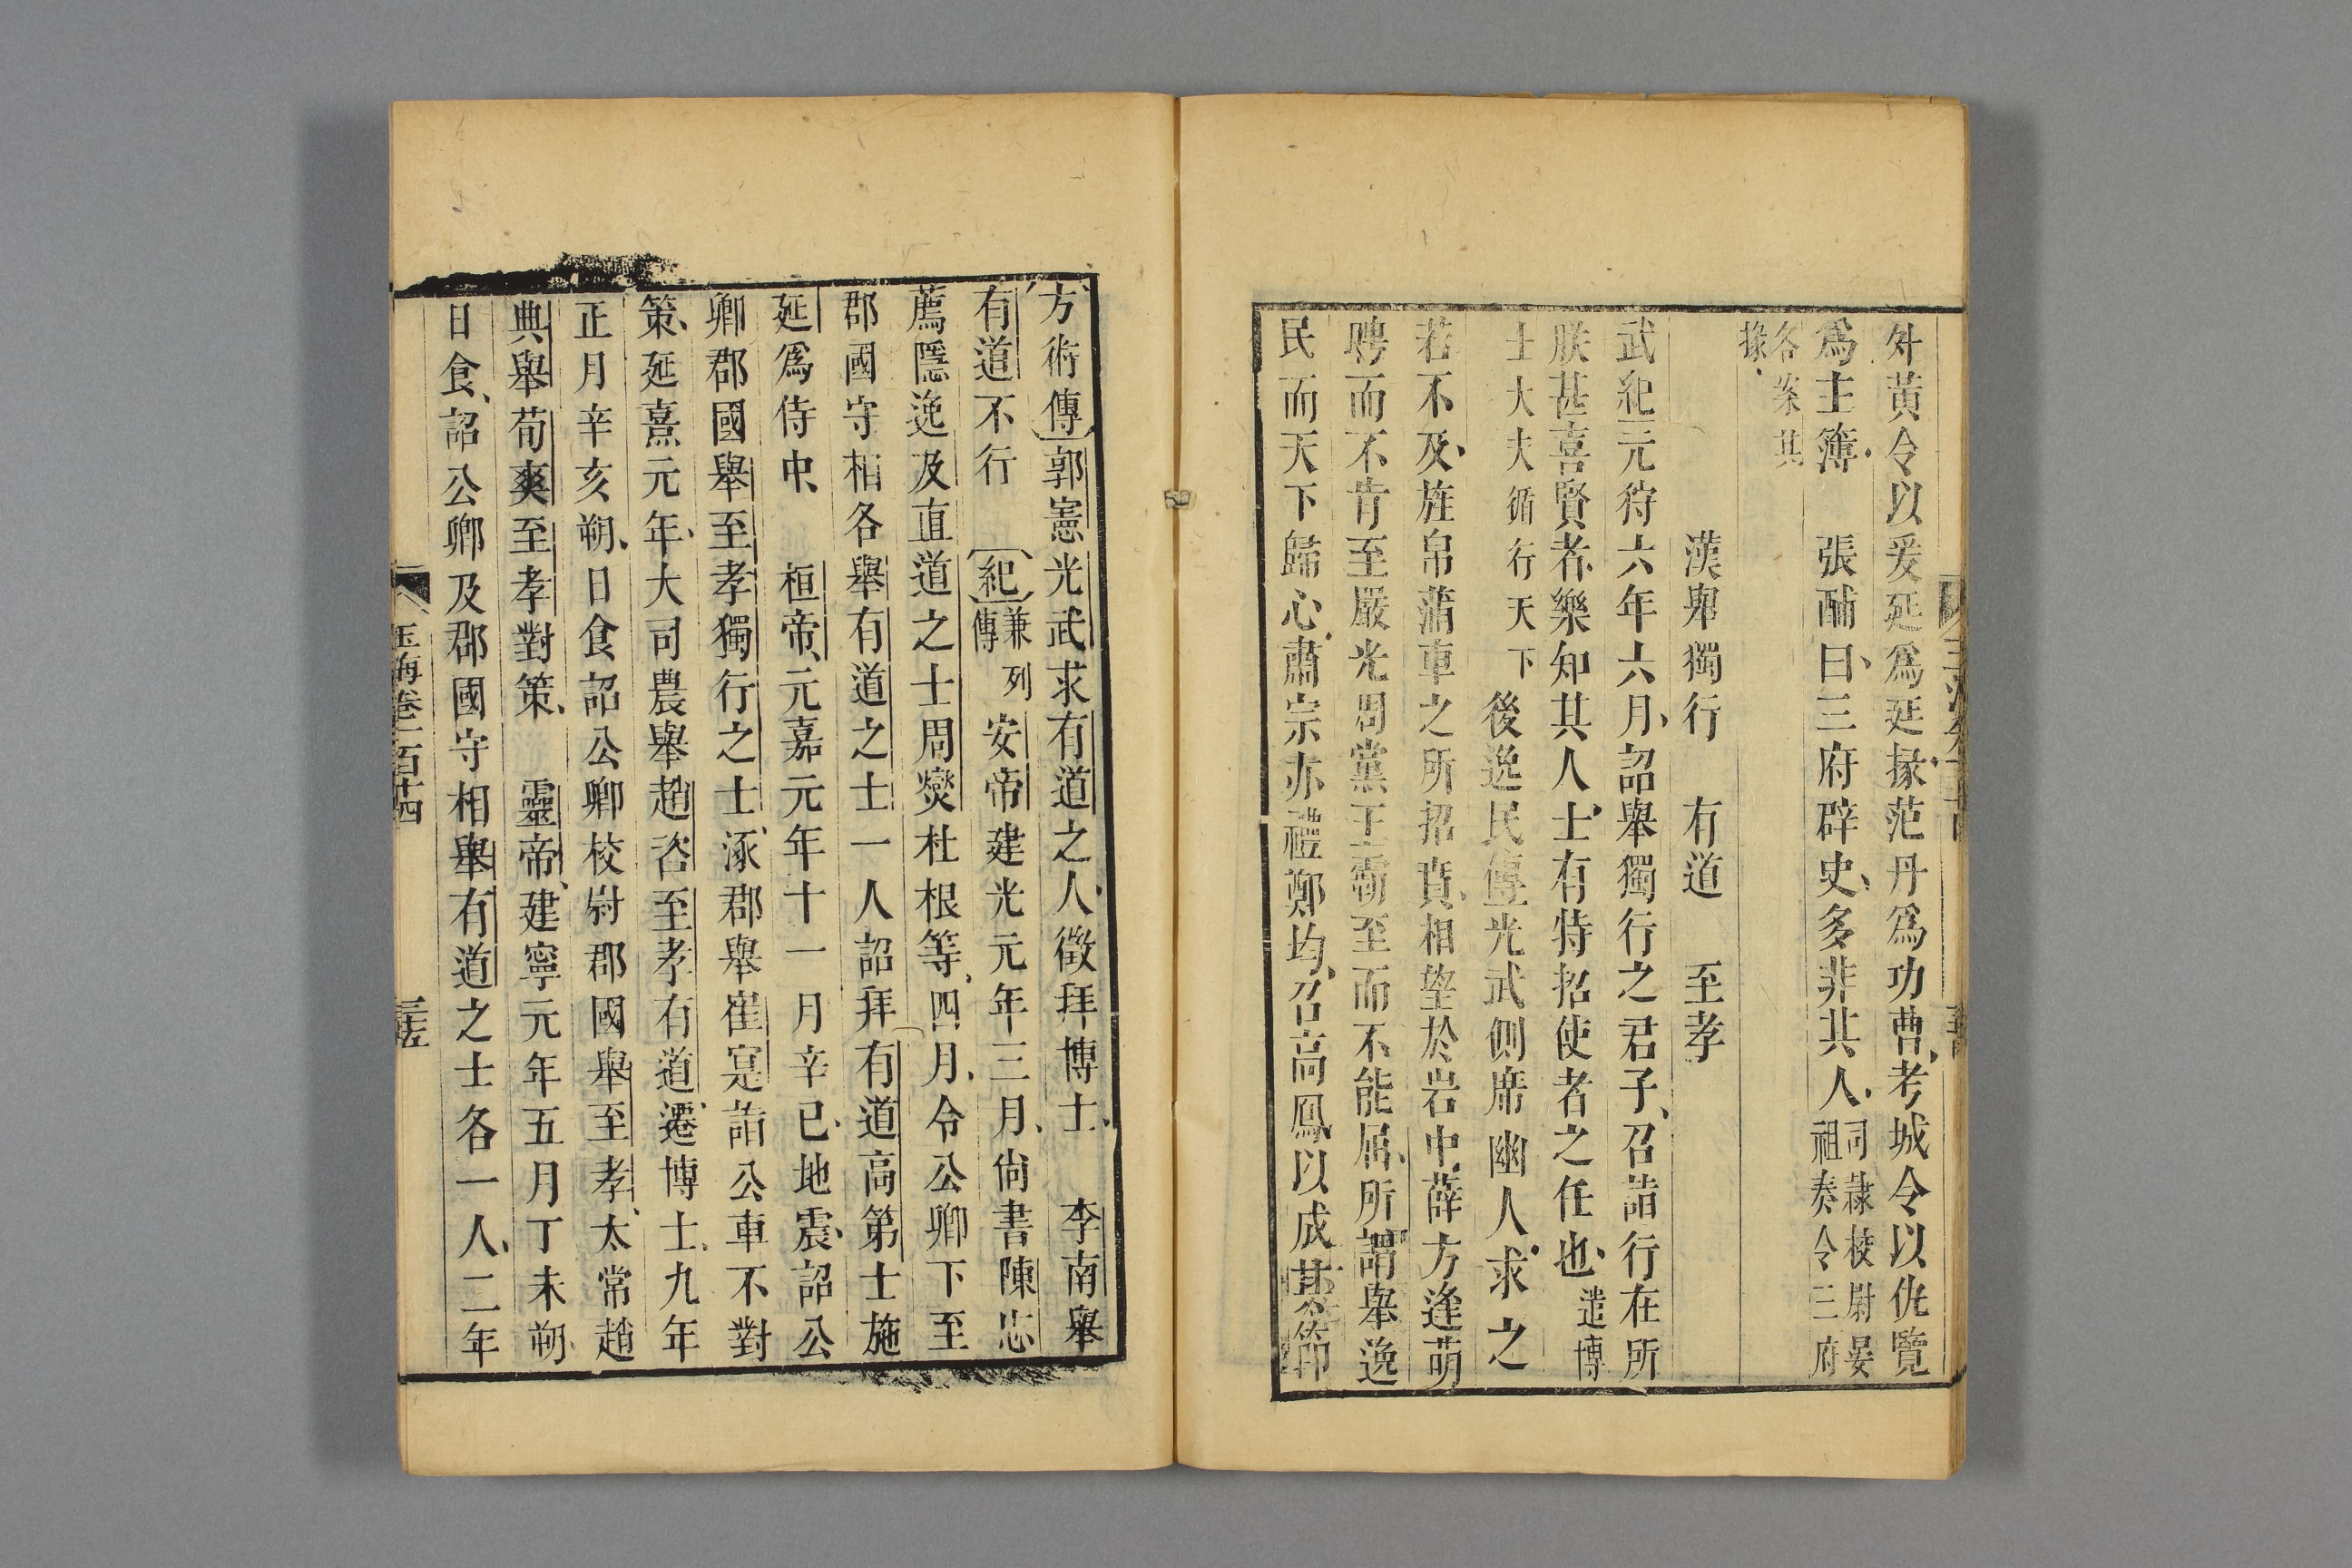 外黃令以爰延爲延掾范丹爲功曹考城令以仇覽
爲主簿　張酺曰三府辟史多非其人司隷校尉晏
祖奏令三府
各案其
掾
漢舉獨行　有道　至孝
武紀元狩六年六月詔舉獨行之君子召詣行在所
朕甚喜賢者樂知其人士有特招使者之任也遣博
士大夫循行天下　後逸民傳光武側席幽人求之
若不及旌帛蒲車之所招賁相望於岩中薛方逢萌
聘而不肯至嚴光周黨王霸至而不能屈所謂舉逸
民而天下歸心肅宗亦禮鄭均召高鳳以成其節
方術傳郭憲光武求有道之人徵拜博士　李南舉
有道不行　紀兼列
傳　安帝建光元年三月尙書陳忠
薦隱逸及直道之士周燮杜根等四月令公卿下至
郡國守相各舉有道之士一人詔拜有道高第士施
延爲侍中　桓帝元嘉元年十一月辛巳地震詔公
卿郡國舉至孝獨行之士涿郡舉崔寔詣公車不對
策延熹元年大司農舉趙咨至孝有道遷博士九年
正月辛亥朔日食詔公卿校尉郡國舉至孝太常趙
典舉荀爽至孝對策　靈帝建寧元年五月丁未朔
日食詔公卿及郡國守相舉有道之士各一人二年
玉海卷一百十四